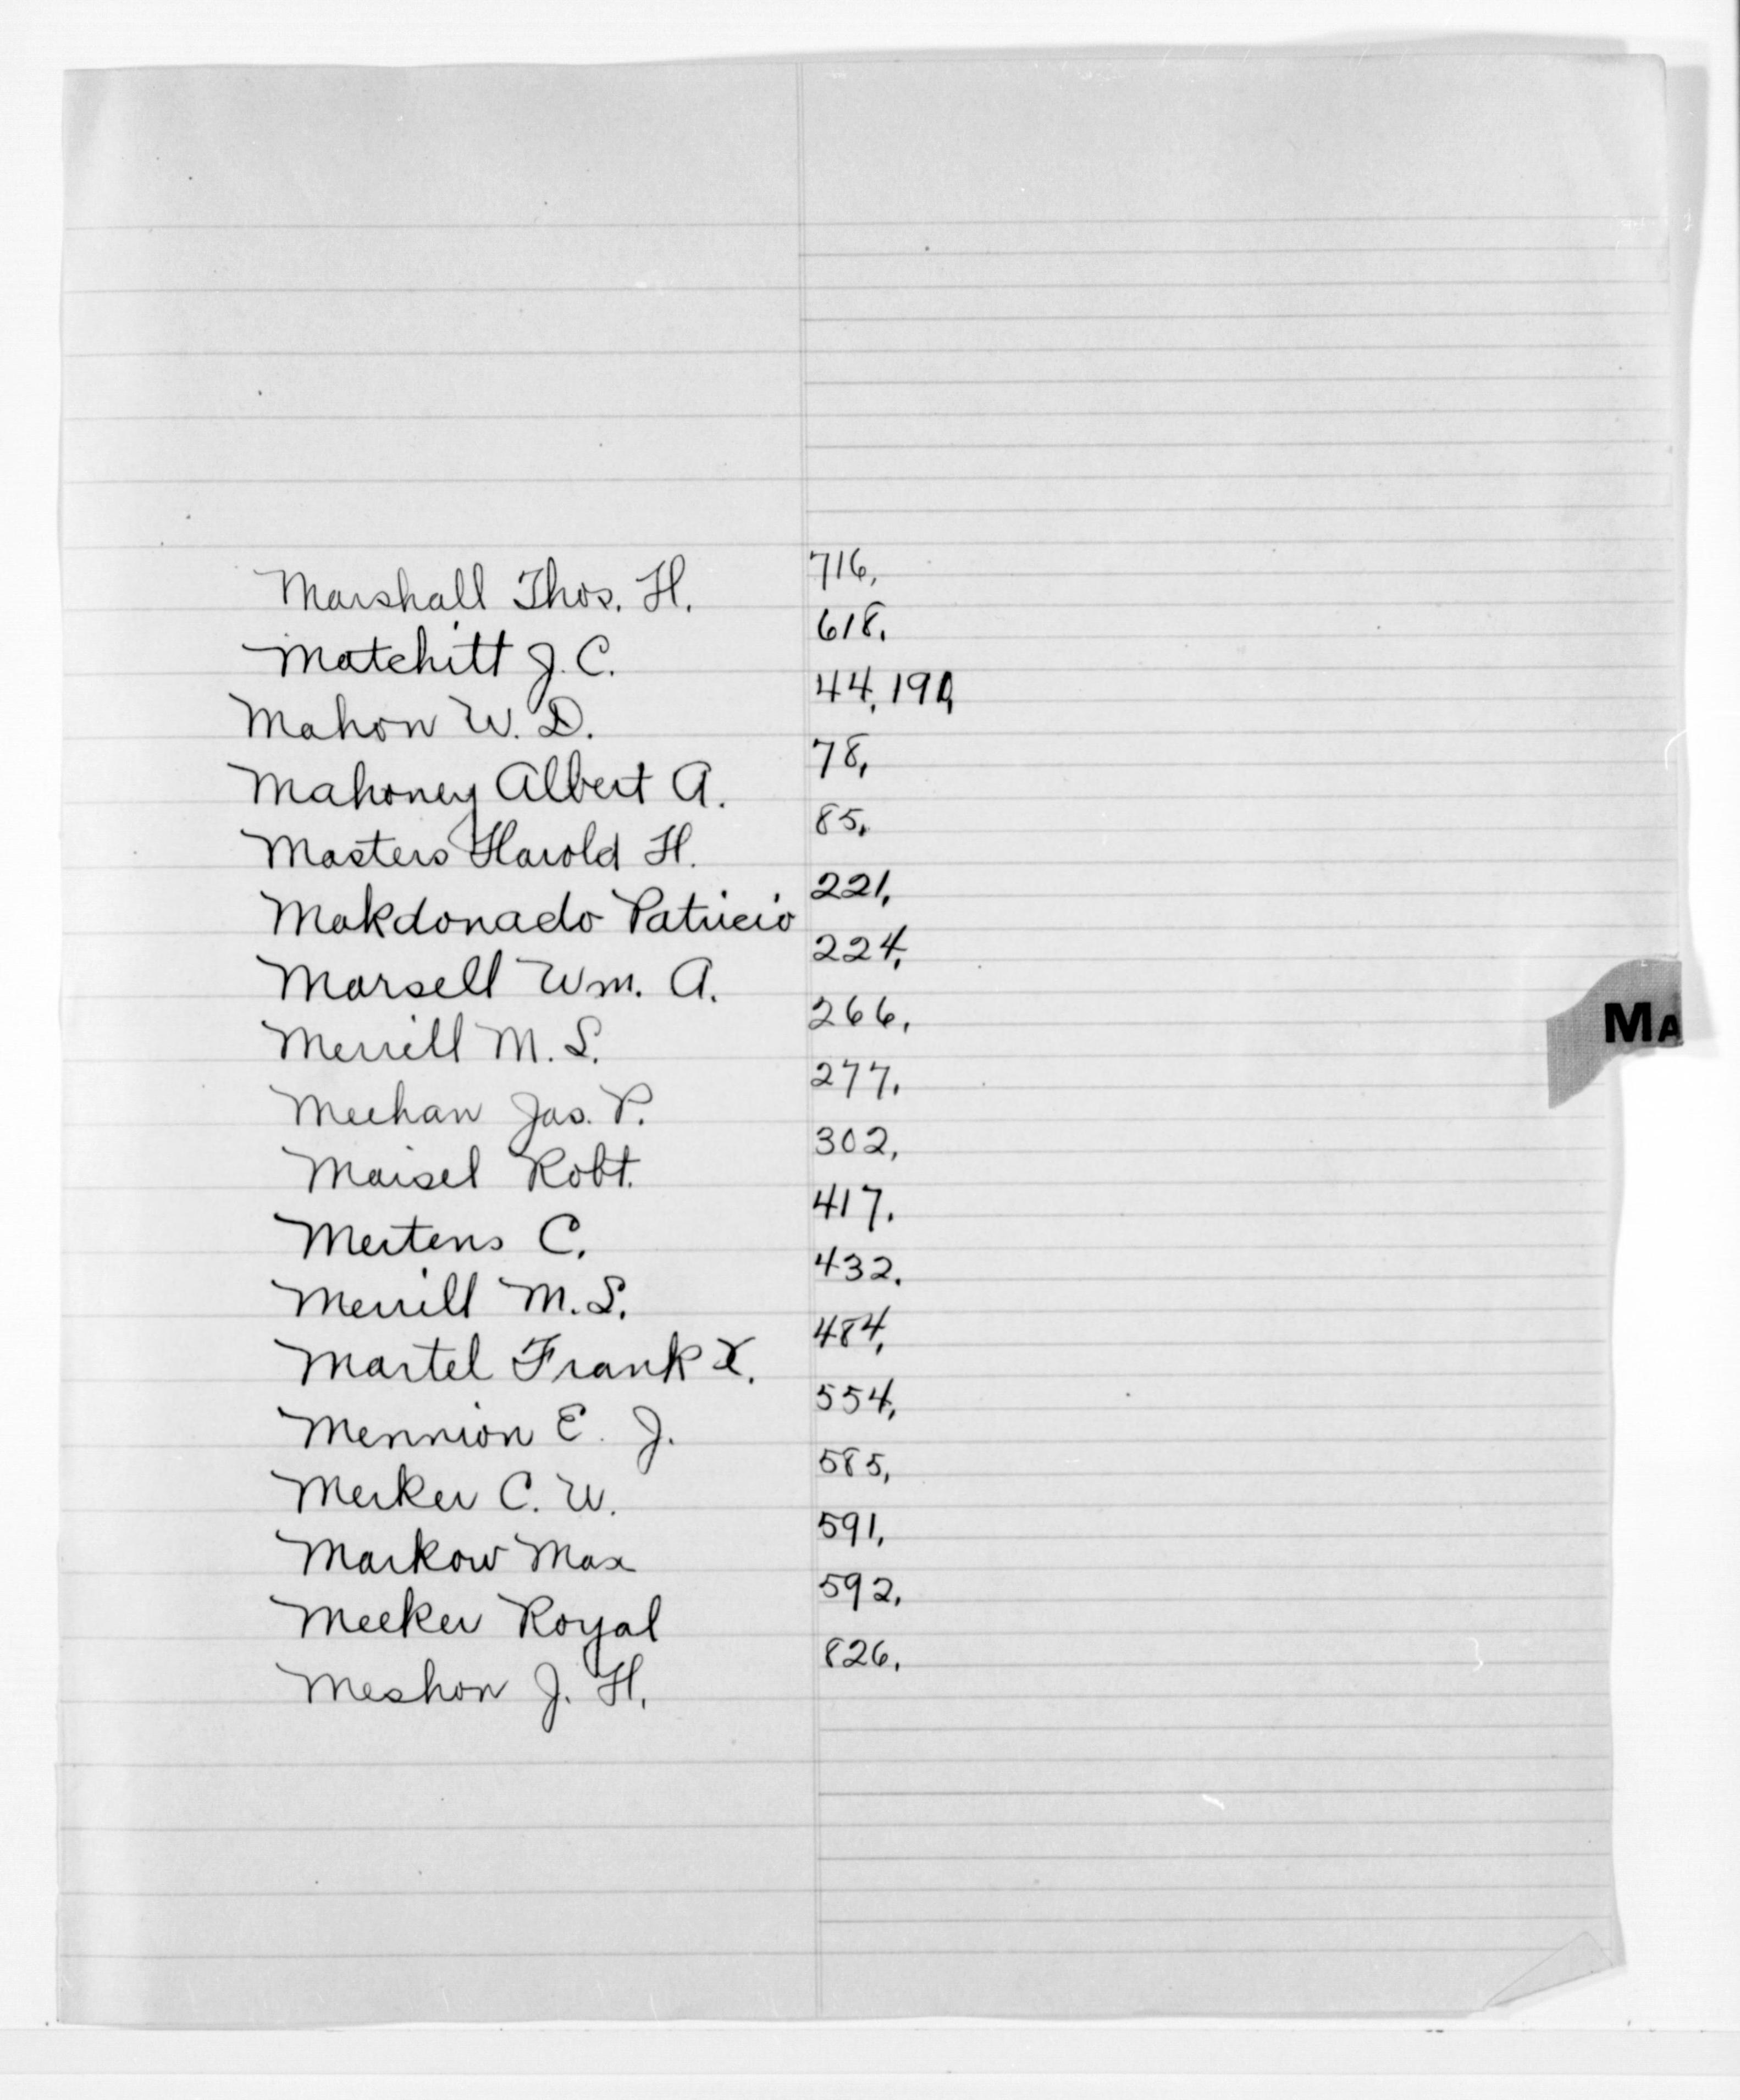 Marshall Thos. H. 716,
Matchitt J. C. 618,
Mahon W. D. 44, 190,
Mahoney Albert A. 78,
Masters Harold H. 85,
Makdonado Patricio 221,
Marsell Wm. A. 224,
Merrill M. S. 266,
Meehan Jas. P. 277,
Maisel Robt. 302,
Mertens C. 417,
Merrill M. S. 432,
Martel Frank X. 484,
Mennion E. J. 554,
Merker C. W. 585,
Markow Max 591,
Meeker Royal 592,
Meshon J. H. 826,
MA